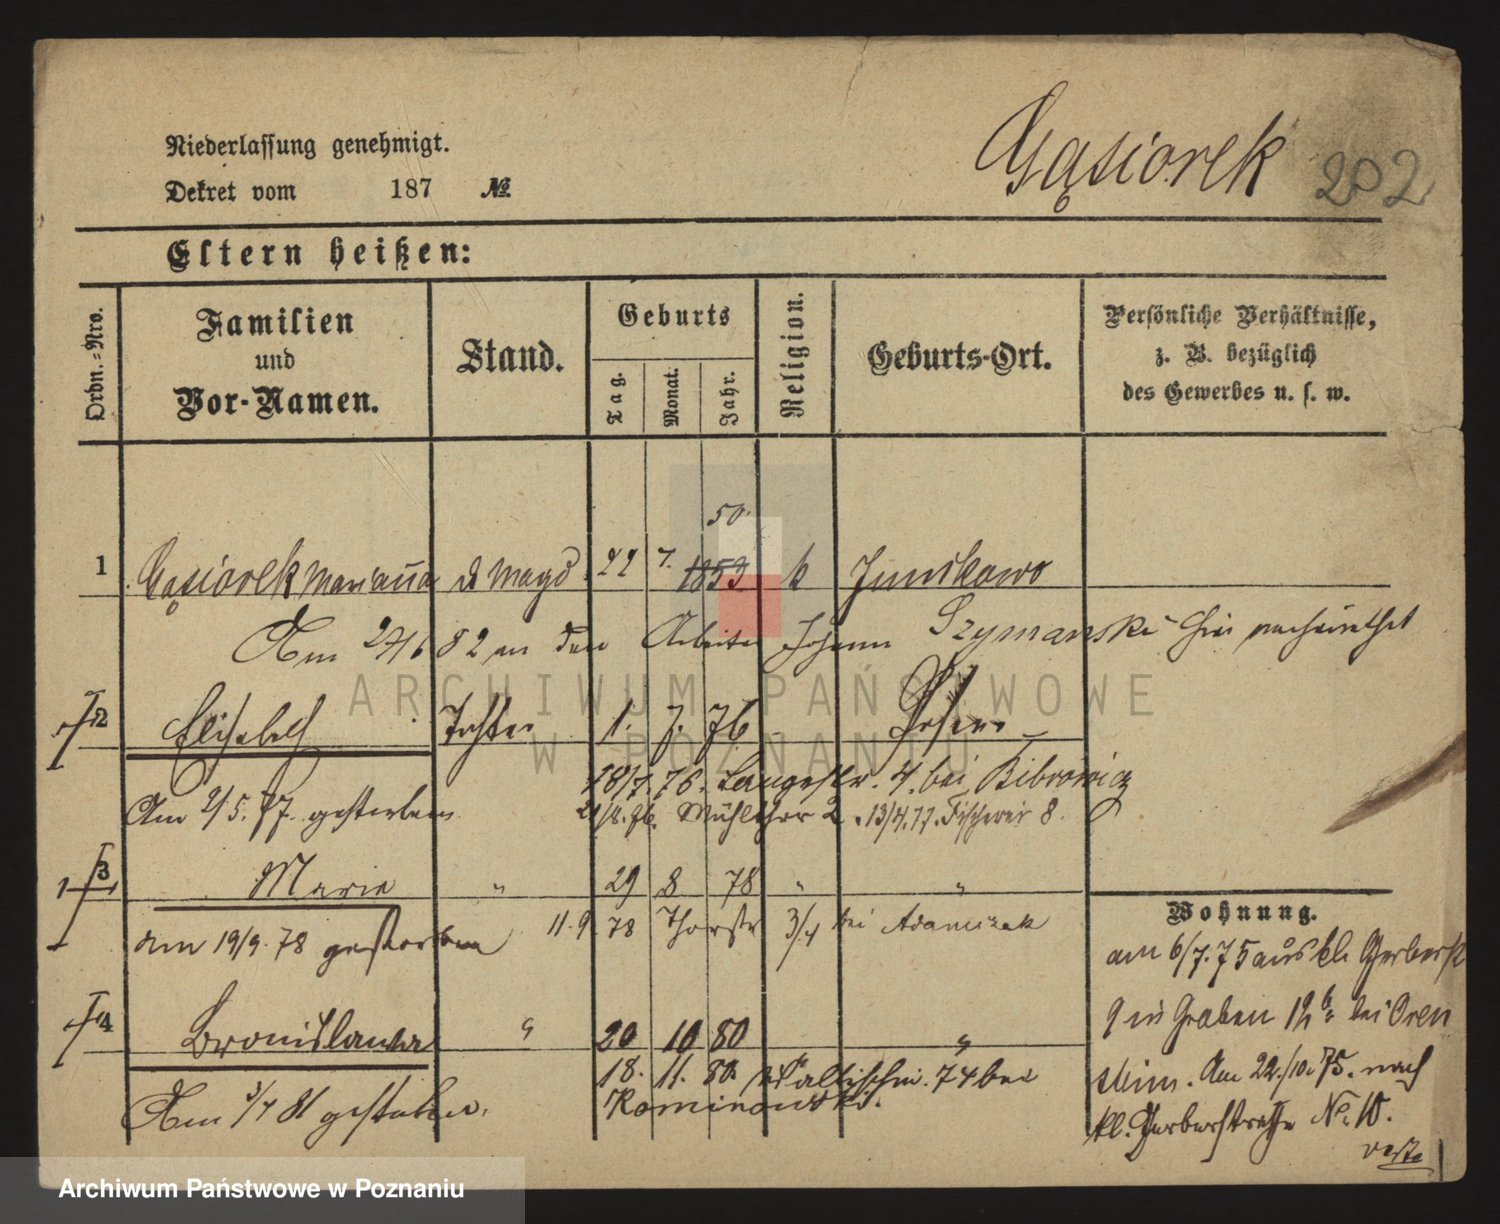 Gąsiorek 202
Niederlassung genehmigt.
Dekret vom 187 №
Eltern heißen:
Ordn.-Nro.
Familien
und
Vor-Namen.
Stand.
Geburts
Tag.
Monat.
Jahr.
Religion.
Geburts-Ort.
Persönliche Verhältnisse,
z. B. bezüglich
des Gewerbes u. s. w.
50
1 Gąsiorek Marianna d Magd 22 7. 1853 k Junikowo
Am 27/6 82 an den Arbeiter Johann Szymanski hier verheirathet
2 Elisabeth Tochter 1. 7. 76 Posen
18/7. 76. Langestr. 4. bei Bibrowicz
Am 2/5. 77. gestorben
21/8. 76. Mühlthor 2. 13/4. 77. Fischerei 8.
3 Marie " 29 8 78 " "
11. 9. 78 Thorstr 3/4 bei Adamczak
am 19/9. 78 gestorben
4 Bronislawa " 20 10 80 "
18. 11. 80 Wallischei. 74 bei
Kominowski.
Am 3/4 81 gestorben.
Wohnung.
am 6/7. 75 aus kl. Gerberstr
9 in Graben 12 b bei Oren
stein. Am 22./10. 75. nach
kl. Gerberstrasse No. 10.
verte
ARCHIWUM PAŃSTWOWE
W POZNANIU
Archiwum Państwowe w Poznaniu